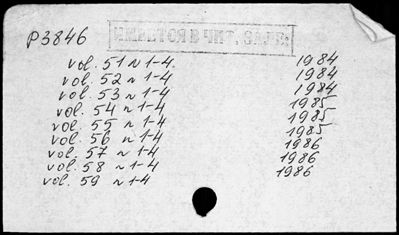 P3846
ИМЕЕТСЯ В ЧИТ. ЗАЛЕ
vol. 51 N 1-4. 1984
vol. 52 N 1-4 1984
vol. 53 N 1-4 1984
vol. 54 N 1-4 1985
vol. 55 N 1-4 1985
vol. 56 N 1-4 1985
vol. 57 N 1-4 1986
vol. 58 N 1-4 1986
vol. 59 N 1-4 1986